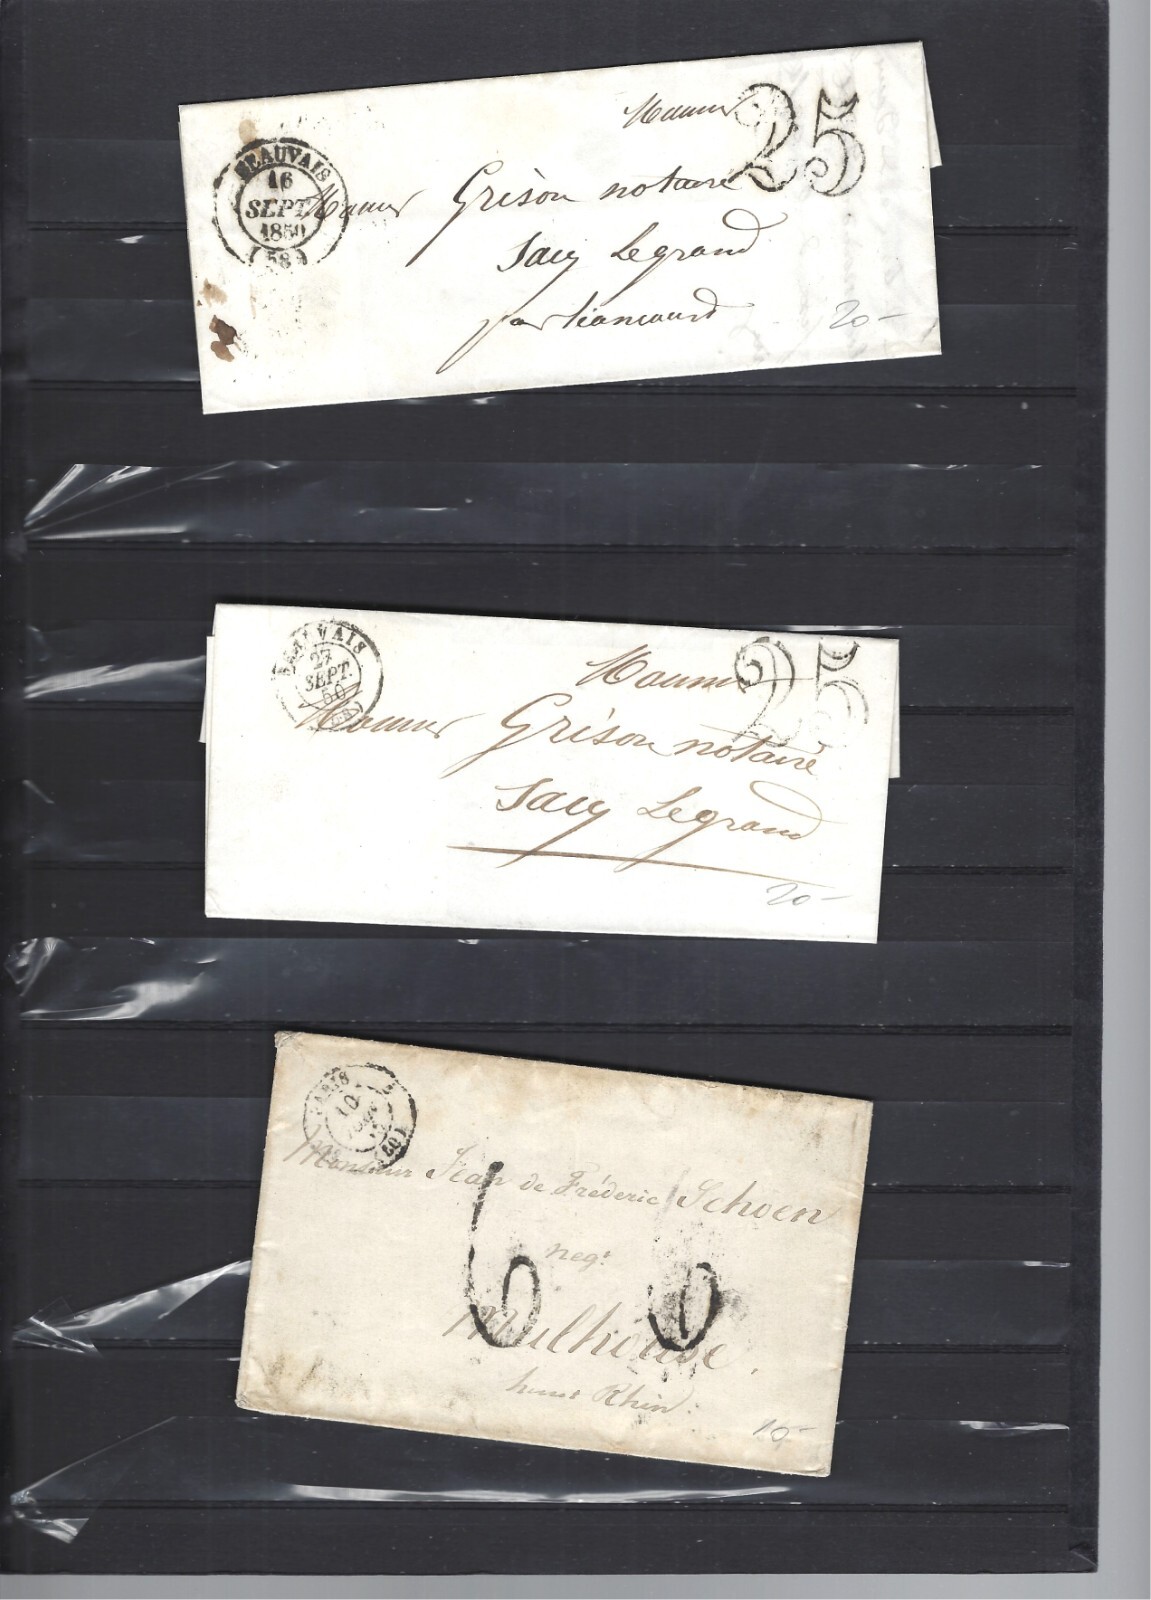 BEAUVAIS
16
SEPT.
1850
(58)
25
Monsieur
Monsieur Grison notaire
Sacy Legrand
par Liancourt
20-
BEAUVAIS
27
SEPT.
50
25
Monsieur
Monsieur Grison notaire
Sacy Legrand
20-
PARIS
10
(60)
Monsieur Jean de Fréderic Schoen
negt
Mulhouse.
haut Rhin.
10-